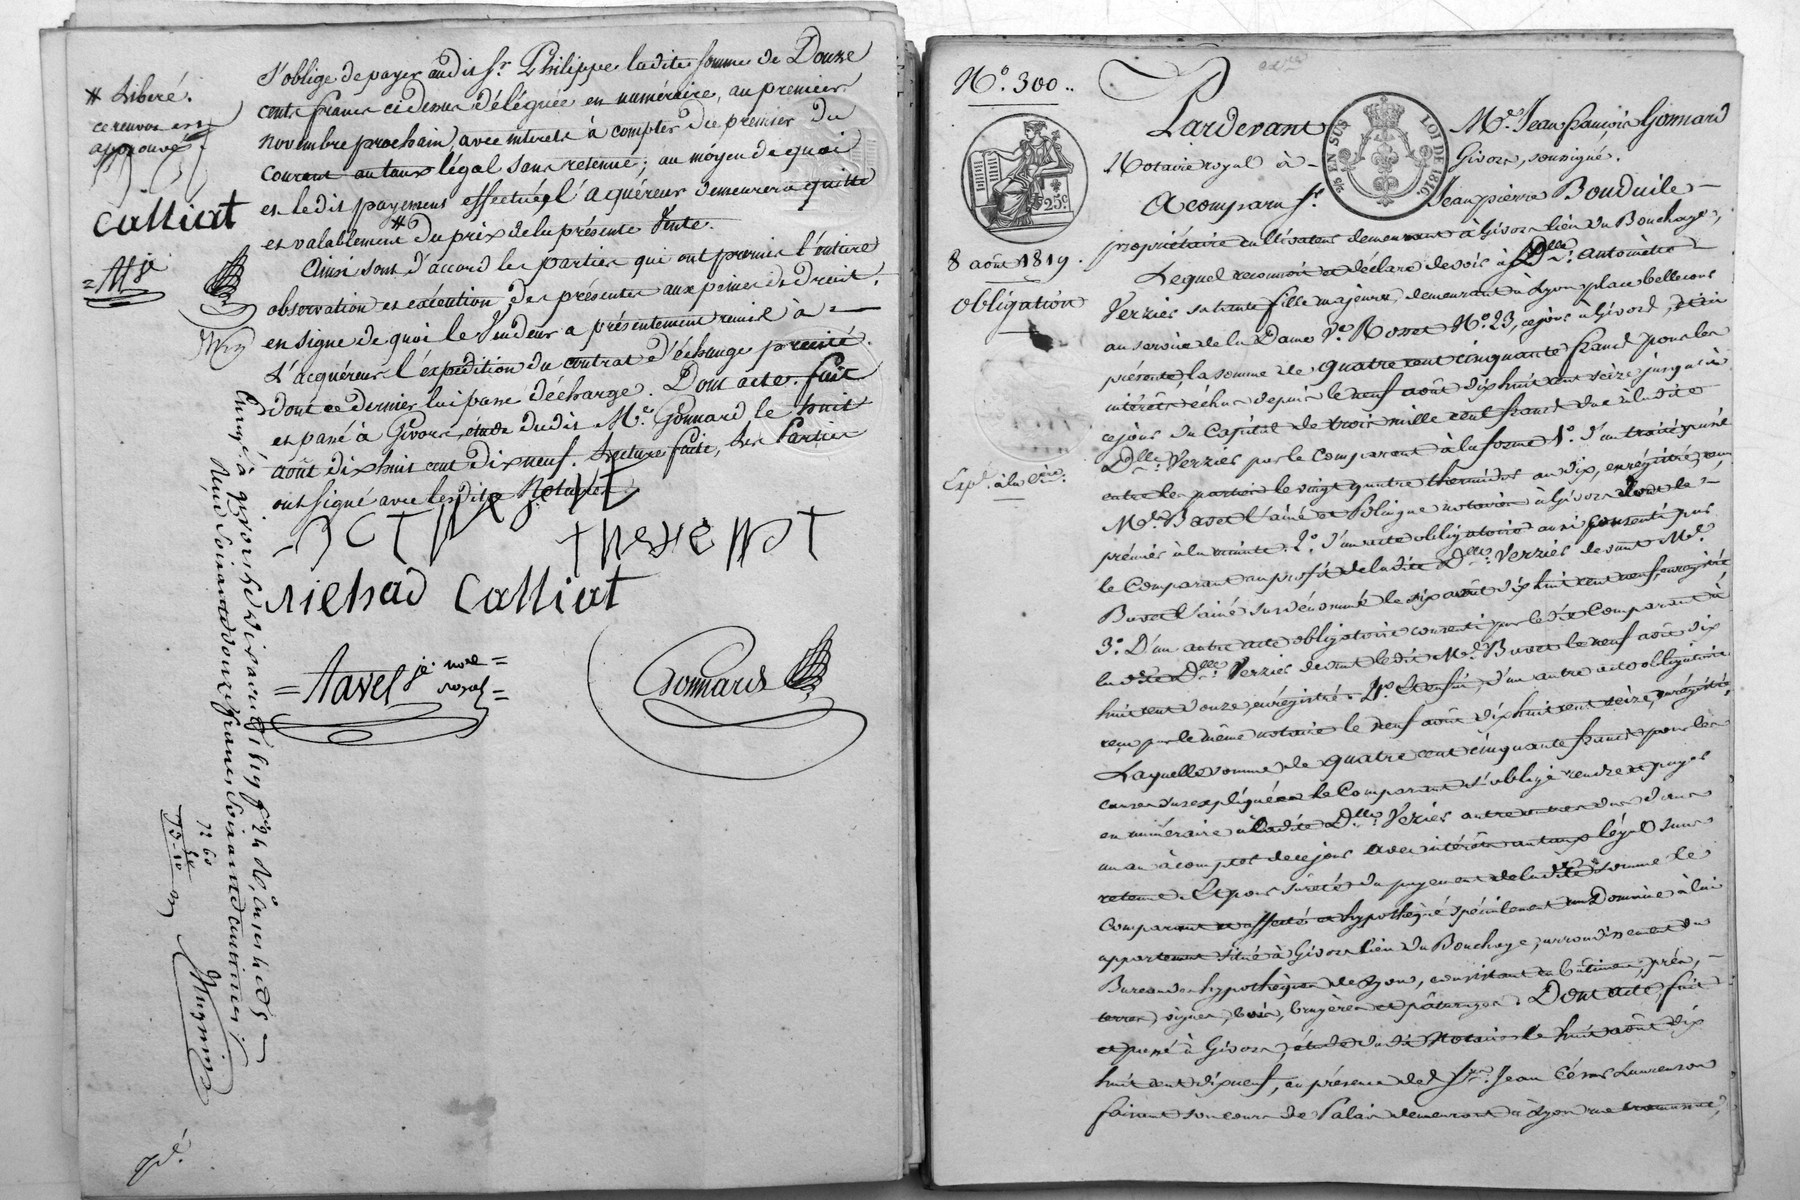 s'oblige de payer audit Sr. Philippe ladite somme de Douze
cents francs ci dessus déléguée en numéraire, au premier
novembre prochain, avec intérêts à compter du premier du
courant au taux légal sans retenue; au moyen de quoi
et ledit payement effectué l'acquéreur demeurera quitte
et valablement # du prix de la présente Vente.
Ainsi sont d'accord les parties qui ont promis l'entière
observation et exécution des présentes aux peines de Droit.
en signe de quoi le Vendeur a présentement remis à
l'acquéreur l'expédition du contrat d'échange précité.
Dont ce dernier lui passe décharge. Dont acte. fait
et passé à Givors, étude dudit Me. Gonnard le huit
août dix huit cent dix neuf. lecture faite, les Parties
ont signé avec lesdits Notaires.
# libéré.
ce renvoi est
approuvé
Calliat
thevenot
richard Calliat
= Navel je. nore =
royal =
Gonnard
Enrgé à givors le
Reçu soixante douze francs soixante centimes;
72 60
N°. 300..
25c.
EN SUS
LOI DE 1816.
8 août 1819.
Obligation
Pardevant Me. Jean françois Gonnard
Notaire royal à Givors, soussigné.
A comparu Sr. Jean pierre Bonduile
propriétaire cultivateur demeurant à Givors lieu du Bouchage,
Lequel reconnoit et déclare devoir à Dlle. Antoinette
Verzier sa tante fille majeure, demeurant à Lyon place bellecour
au service de la Dame Ve. Rosset N°. 23, ce jour à Givors, et ici
présente, la somme de quatre cent cinquante francs pour les
intérêts échus depuis le neuf août dix huit cent seize jusqu'à
ce jour du Capital de trois mille cent francs due à ladite
Dlle. Verzier par le Comparant à la forme 1°. d'un traité passé
entre les parties le vingt quatre thermidor an dix, enrégistré,
Me. Bavet l'ainé et Bolingue notaires à Givors
prémier à la minute. 2°. d'un acte obligatoire aussi consenti par
le Comparant au profit de ladite Dlle. Verzier devant Me.
Bavet l'ainé susdénommé le six août dix huit cent neuf, enrégistré,
3°. D'un autre acte obligatoire consenti par ledit Comparant à
ladite Dlle. Verzier devant ledit Me. Bavet le neuf août dix
huit cent douze, enrégistré. 4°. Et enfin, d'un autre acte obligatoire
reçu par le même notaire le neuf août dix huit cent seize, enrégistré,
Laquelle somme de quatre cent cinquante francs pour les
causes sus expliquées le Comparant s'oblige rendre et payer
en numéraire à ladite Dlle. Verzier dans
un an à compter de ce jour avec intérêts au taux légal sans
retenue. Et pour sûreté du payement de ladite somme le
Comparant a affecté et hypothéqué spécialement un Domaine à lui
appartenant situé à Givors lieu du Bouchage, arrondissement du
Bureau des hypothèques de Lyon, consistant en bâtimens, prés,
terres, vignes, bois, bruyères et pâturages. Dont acte, fait
et passé à Givors, étude dudit Notaire le huit août dix
huit cent dix neuf, en présence de Sr. Jean César Laurenson
faisant son cours de Palais demeurant à Lyon rue